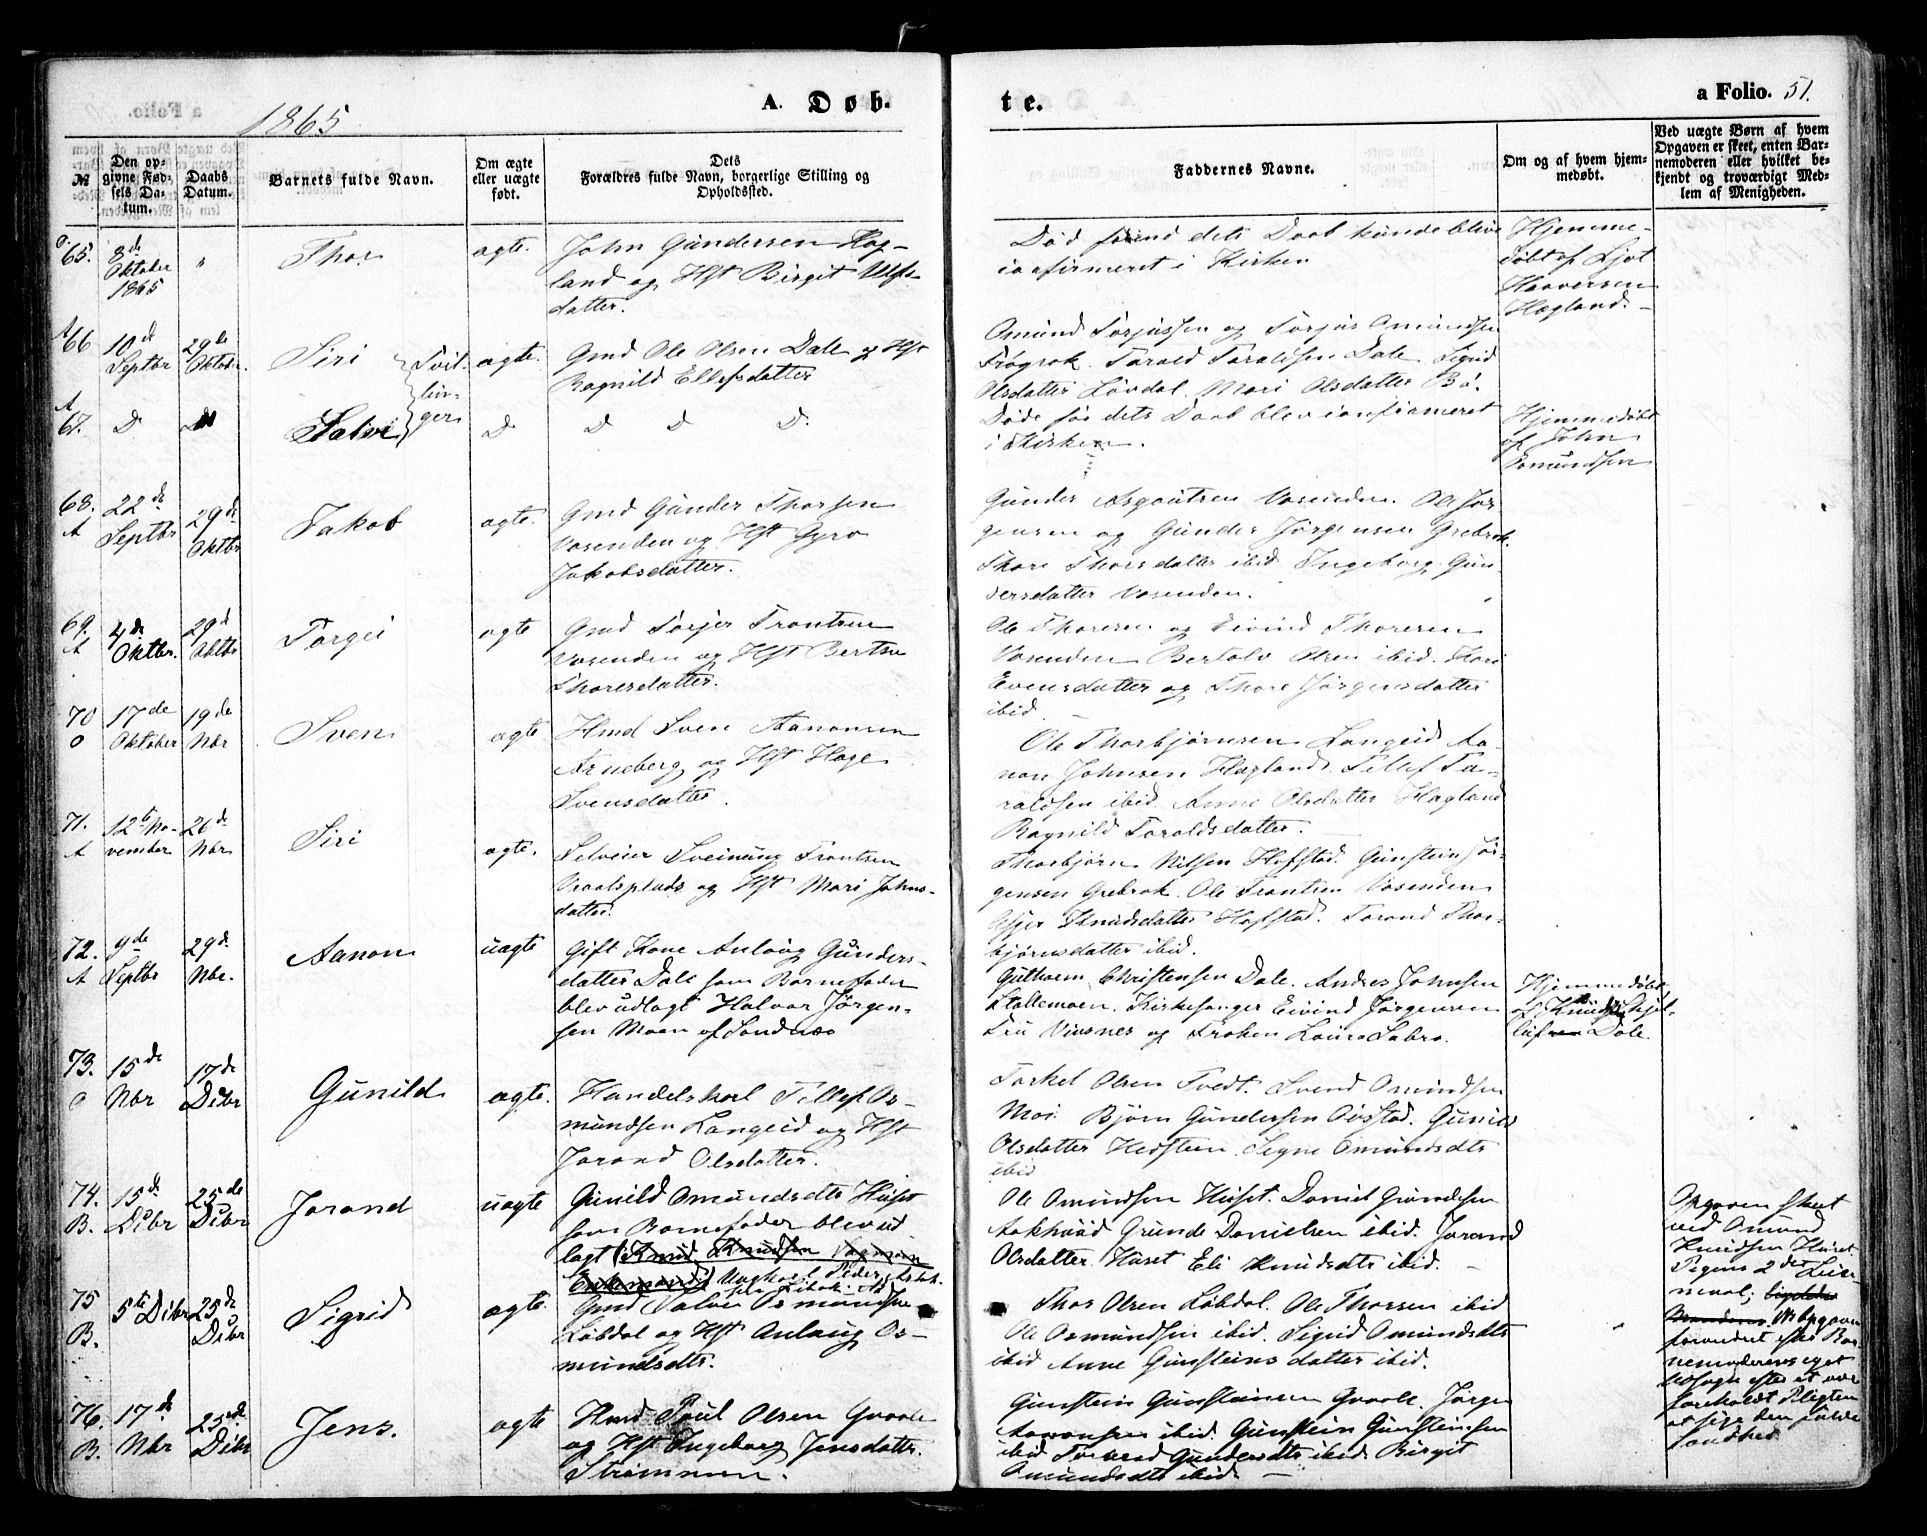 1865
A. Døb.
te.
a Folio. 51.
№
Den opgivne Fødsels Datum.
Daabs Datum.
Barnets fulde Navn.
Om ægte eller uægte født.
Dets Forældres fulde Navn, borgerlige Stilling og Opholdssted.
Faddernes Navne.
Om og af hvem hjemmedøbt.
Ved uægte Børn af hvem Opgaven er skeet, enten Barnemoderen eller hvilket bekjendt og troværdigt Medlem af Menigheden.
O.
65. 8de Oktober 1865 " Thor ægte.
John Gundersen Hag-
land og Hst Birgit Ulfs-
datter.
Død førend dets Daab kunde blive
confirmeret i Kirken
Hjemme-
døbt af Ljot
Haaversen
Hagland.
A
66 10de Septbr 29de Oktober. Siri Tvil-
lin-
ger ægte.
Gmd Ole Olsen Dale og Hst
Ragnild Ellefsdatter
Omund Torjussen og Torjus Omundsen
Frøgrok. Tarald Taraldsen Dale. Sigrid
Olsdatter Løvdal. Mari Olsdatter Bø.
A
67. D D Salve D
D D D.
Døde før dets Daab blev confirmeret
i Kirken.
Hjemmedøbt
af John
Osmundsen
68.
A 22de Septbr 29de Oktbr Jakob ægte.
Gmd Gunder Thorsen
Vasenden og Hst Gyro
Jakobsdatter.
Gunder Asgoutsen Vasenden. Ole Jør
gensen og Gunder Jørgensen Grebrok.
Thore Thorsdatter ibid Ingeborg Gun-
dersdatter Vasenden.
69.
A 4de Oktbr. 29de Oktbr Torgei ægte
Gmd Torjer Trontsen
Vasenden og Hst Bertha
Thoresdatter.
Ole Thoresen og Eivind Thoresen
Vasenden Bertolv Olsen ibid. Kari
Evensdatter og Thore Jørgensdatter
ibid
70
O 17de Oktober 19de Nbr Sven ægte
Hmd Sven Aanonsen
Arneberg og Hst Hage
Svensdatter.
Ole Thorbjørnsen Langeid Aa-
non Johnsen Hagland. Tellef Ta-
raldsen ibid. Anne Olsdatter Hagland
Ragnild Taraldsdatter.
71.
A 12te No-
vember 26de Nbr Siri ægte.
Selveier Sveinung Trontsen
Vraalsplads og Hst Mari Johns-
datter.
Thorbjørn Nilsen Hofstad. Gunstein Jør-
gensen Grebrok. Ole Trontsen Vasenden
Gjer Knudsdatter Hofstad. Torand Thor-
bjørnsdatter ibid.
72.
A 9de Septbr 29de Nbr. Aanon uægte
Gift Kone Anlaug Gunders-
datter Dale som Barnefader
blev udlagt Halvor Jørgen-
sen Moen af Sandnes
Guthorm Christensen Dale. Andres Johnsen
Stallemoen. Kirkesanger Eivind Jørgensen
Fru Vinsnes og Frøken Louise Sabro.
Hjemmedøbt
af Knud Skjel-
lufsen Dale.
73.
O 15de Nbr 17de Dcbr Gunild ægte.
Handelskarl Tellef Os-
mundsen Langeid og Hst
Jorand Olsdatter.
Torkel Olsen Tvedt. Svend Omundsen
Moi. Bjørn Gundersen Øvstad. Gunild
Olsdatter Hedsteen. Signe Omundsdtr
ibid
74.
B. 15de Dcbr 25de Dcbr Jorand uægte
Gunild Omundsdtr Huset
som Barnefader blev ud
lagt Knud Knudsen
Ole Omundsen Huset. Daniel Grundesen
Aakhuus Grunde Danielsen ibid. Jorand
Olsdatter Huset Eli Knudsdtr ibid.
Opgaven skeet
ved Omund
Knudsen Huset.
Pigens 2det Leier
maal; Opgaven
forandret efter Bar
nemoderens eget
Udsagn efter at være
foreholdt Pligten
at sige den fulde
Sandhed
75
B. 5te Dcbr 25de Dcbr Sigrid ægte.
Gmd Salve Osmundsen
Løbdal og Hst Anlaug Os-
mundsdtr.
Thor Olsen Løbdal. Ole Thorsen ibid
Ole Osmundsen ibid. Sigrid Omundsdtr
ibid Anne Gunsteinsdatter ibid.
76.
B. 17de Nbr 25de Dcbr Jens. ægte
Hmd Poul Olsen Graale
og Hst Ingeborg Jensdatter
Strømmen.
Gunstein Gunsteinsen Graale. Jørgen
Aanonsen ibid. Gunstein Gunsteinsen
ibid Torborg Gundersdtr ibid. Birgit
Omundsdtr ibid.